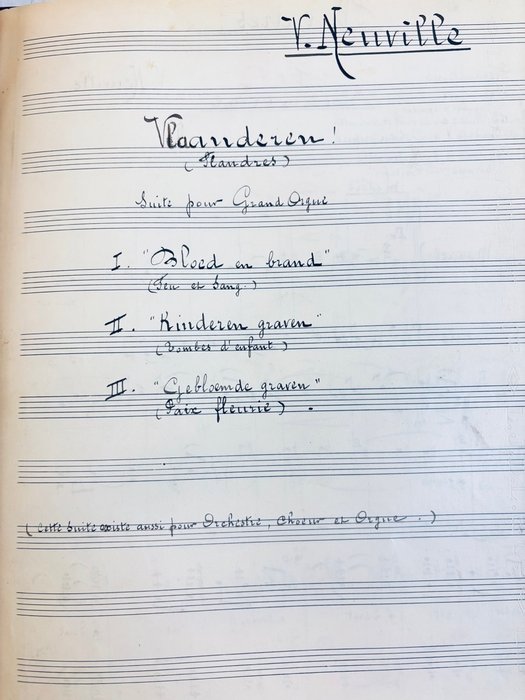 V. Neuville
Vlaanderen!
(Flandres)
Suite pour Grand Orgue
I. "Bloed en brand"
(Feu et Sang.)
II. "Kinderen graven"
(Tombes d'enfant)
III. "Gebloemde graven"
(Paix fleurie).
(Cette Suite existe aussi pour Orchestre, Choeur et Orgue.)